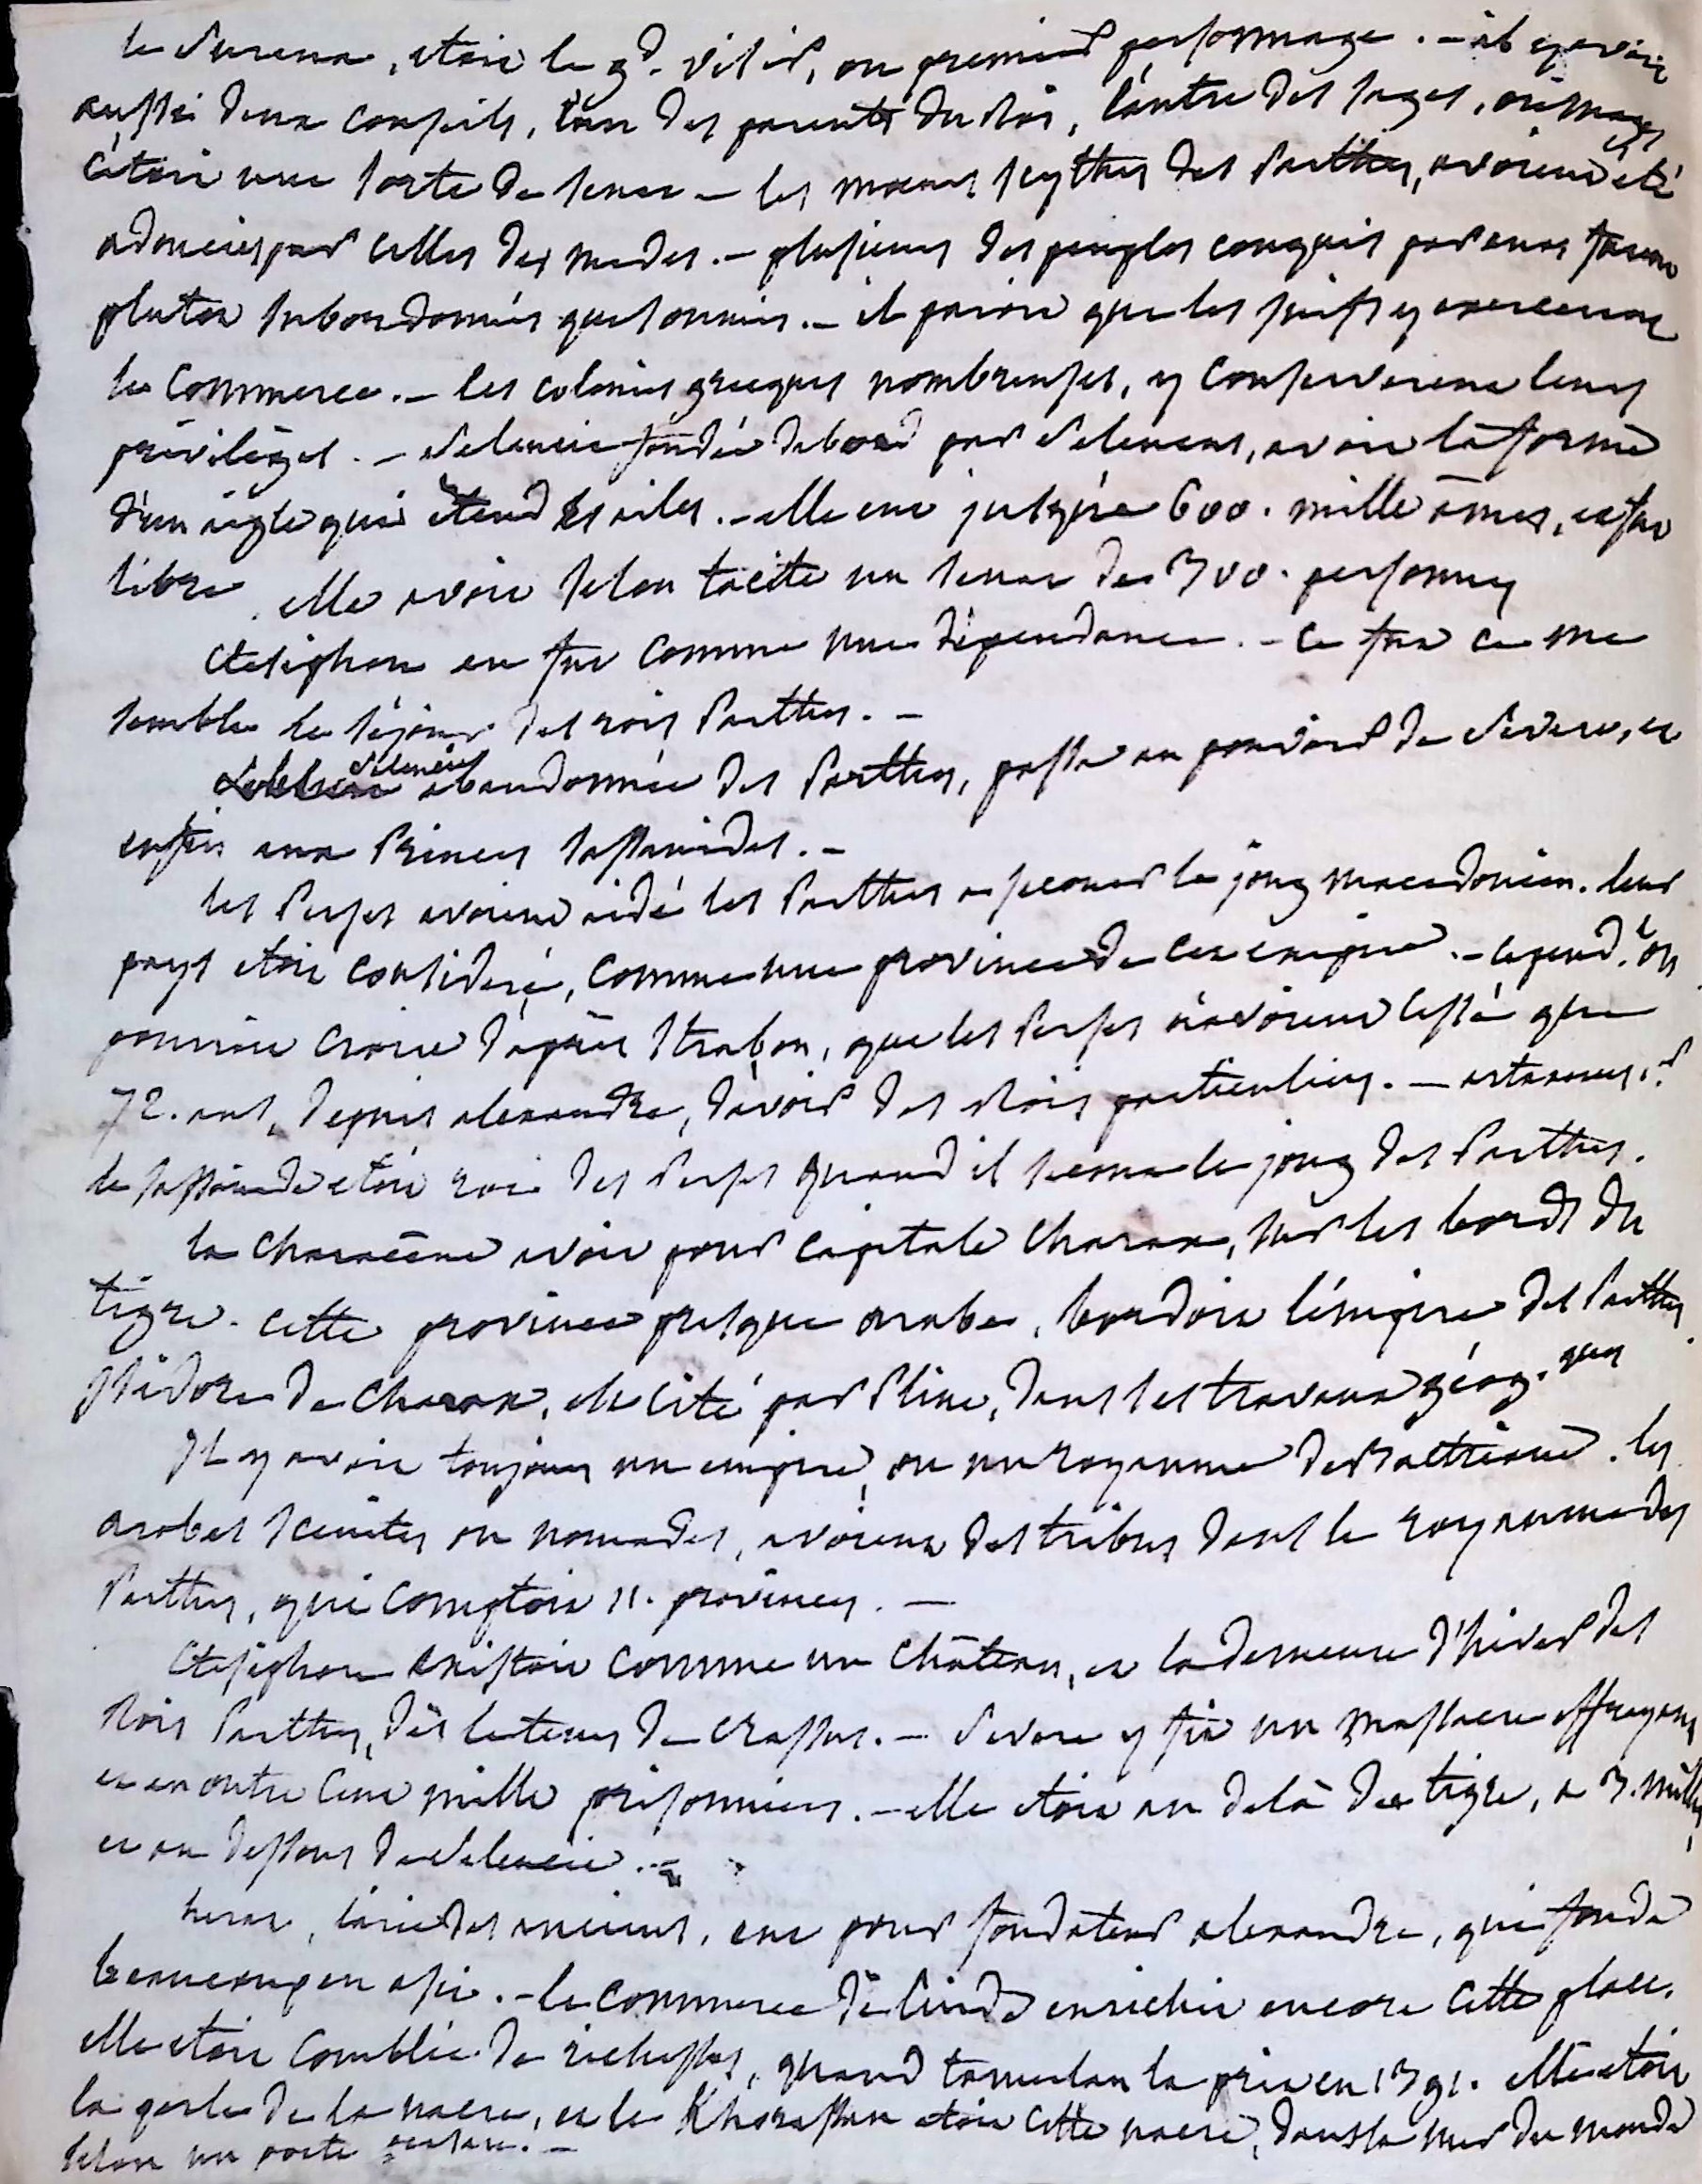 le Surena, etoit le gd. visir, ou premier personnage. - il y avoit
aussi deux conseils, l'un des parents du Roi, l'autre des sages, ou mages
c'etoit une sorte de senat - les mœurs scythes des Parthes, avoient été
adoucies par celles des medes. - plusieurs des peuples conquis par eux furent
plutot subordonnés que soumis. - il paroit que les juifs y exercerent
le commerce. - les colonies grecques nombreuses, y conserverent leurs
privilèges. - Seleucie fondée dabord par Seleucus, avoit la forme
d'un aigle qui étend les ailes. - elle eut jusqu'à 600. mille âmes, et fut
libre. elle avoit selon tacite un senat de 300. personnes
Ctesiphon en fut comme une dépendance. - ce fut ce me
semble le séjour des rois Parthes. -
Seleucie abandonnée des Parthes, passa au pouvoir de Severe, et
enfin aux Princes sassanides. -
les Perses avoient aidé les Parthes a secouer le joug macedonien. leur
pays etoit consideré, comme une province de cet empire. - cepend.t on
pourroit croire d'après Strabon, que les Perses n'avoient cessé que
72. ans, depuis alexandre, d'avoir des Rois particuliers. - artaxerxes
le sassanide etoit roi des Perses quand il secoua le joug des Parthes.
la characène avoit pour capitale Charax, sur les bords du
tigre. cette province presque arabe, bordoit l'empire des Parthes
Isidore de Charax, est cité par Pline, dans les travaux géog.ques
Il y avoit toujours un empire, ou un royaume de Bactriane. les
arabes scenites ou nomades, avoient des tribus dans le royaume des
Parthes, qui comptoit 11. provinces. -
Ctesiphon existoit comme un château, et la demeure d'hiver des
Rois Parthes, dès le tems de Crassus. - Severe y fit un massacre effrayant
et en outre cent mille prisonniers. - elle etoit au delà du tigre, a 3. milles
et au dessous de Seleucie. -
herat, l'arie des anciens, eut pour fondateur alexandre, qui fonda
beaucoup en asie. - le commerce de l'inde enrichit encore cette place.
elle etoit comblée de richesses, quand tamerlan la prit en 1391. elle etoit
la perle de la nacre, et le Khorassan etoit cette nacre, dans la mer du monde
selon un poete persan. -